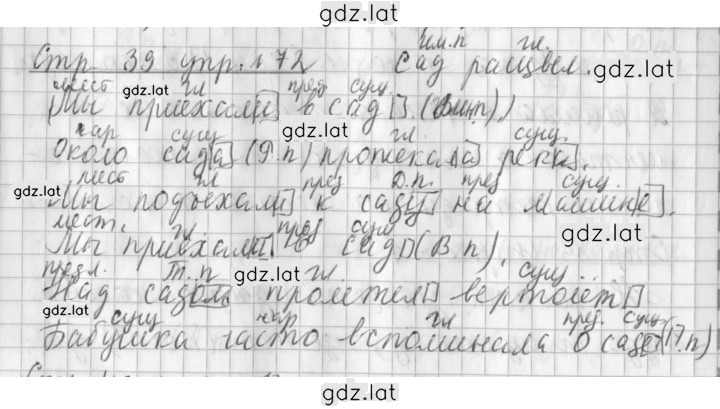 gdz.lat
им.п гл.
Стр. 39 упр. 172 Сад расцвел. gdz.lat
мест гл пред сущ
Мы приехали в сад (Вин.п) gdz.lat
нар сущ gdz.lat гл. сущ.
Около сада (Р.п) протекала река.
gdz.lat мест гл пред Д.п. пред сущ.
Мы подъехали к саду на машине.
мест. гл. пред сущ gdz.lat
Мы приехали в сад (В п).
предл. Т.п gdz.lat гл. сущ
Над садом пролетел вертолёт
gdz.lat сущ нар гл пред. сущ.
Бабушка часто вспоминала о саде (П.п)
gdz.lat